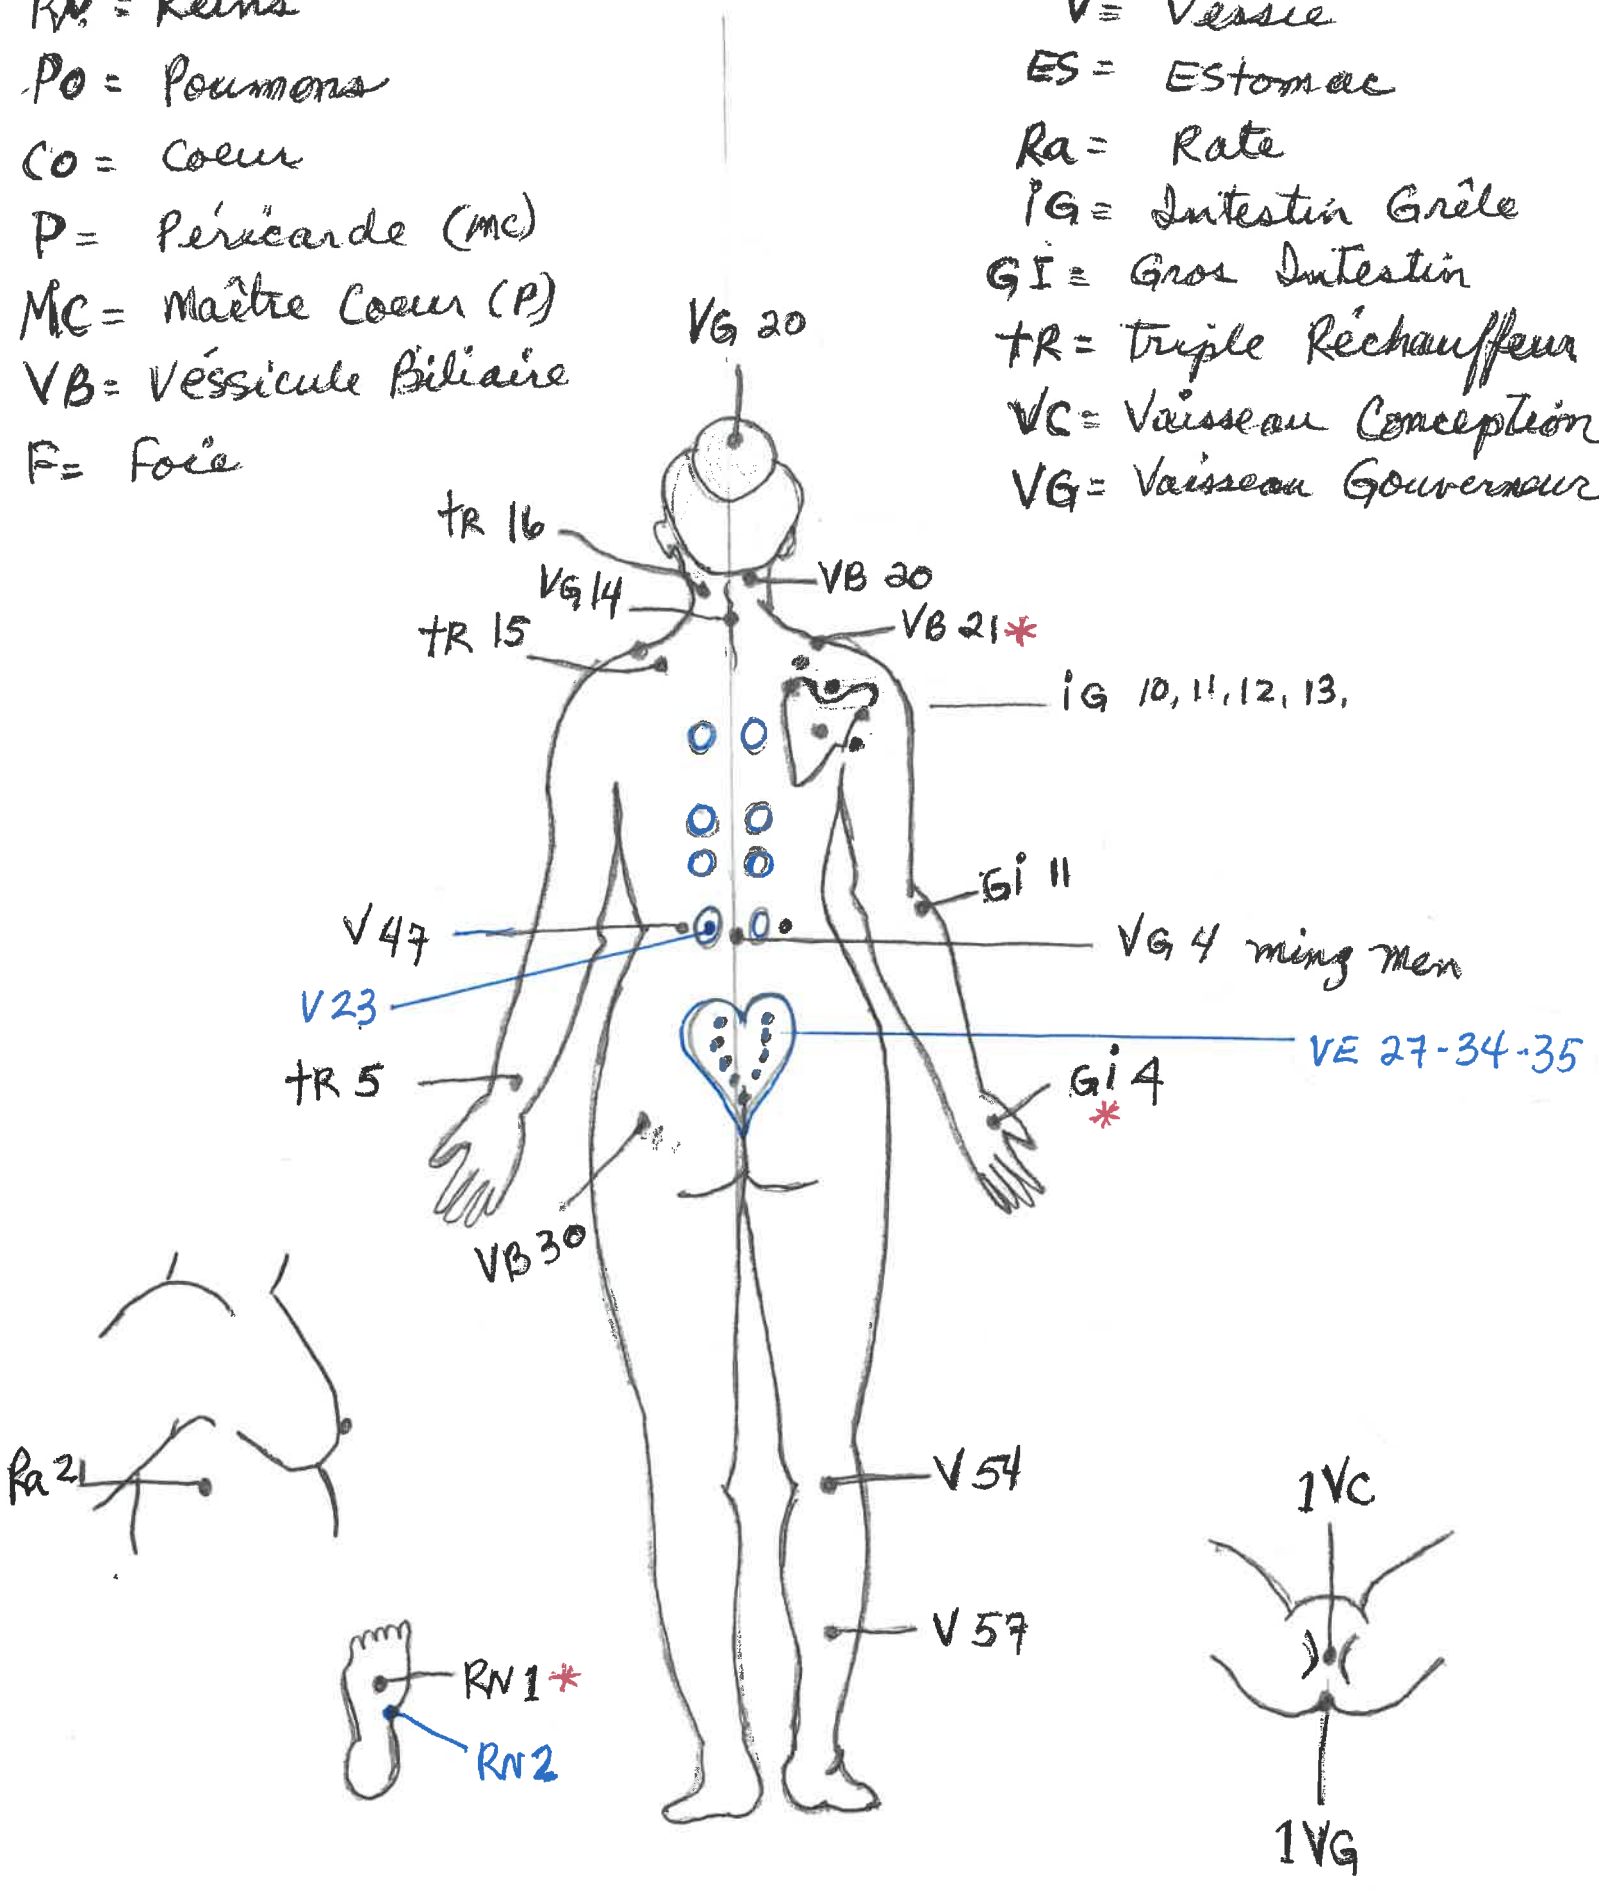 RN = Reins
PO = Poumons
CO = Coeur
P = Péricarde (MC)
MC = Maître Coeur (P)
VB = Véssicule Biliaire
F = Foie
V = Vessie
ES = EStomac
Ra = Rate
iG = Intestin Grêle
GI = Gros Intestin
tR = triple Réchauffeur
VC = Vaisseau Conception
VG = Vaisseau Gouverneur
VG 20
tR 16
VG 14
VB 20
tR 15
VB 21*
iG 10, 11, 12, 13,
Gi 11
V 47
VG 4 ming men
V 23
VE 27-34-35
tR 5
Gi 4
*
VB 30
Ra 21
V 54
1VC
V 57
RN 1*
RN 2
1VG